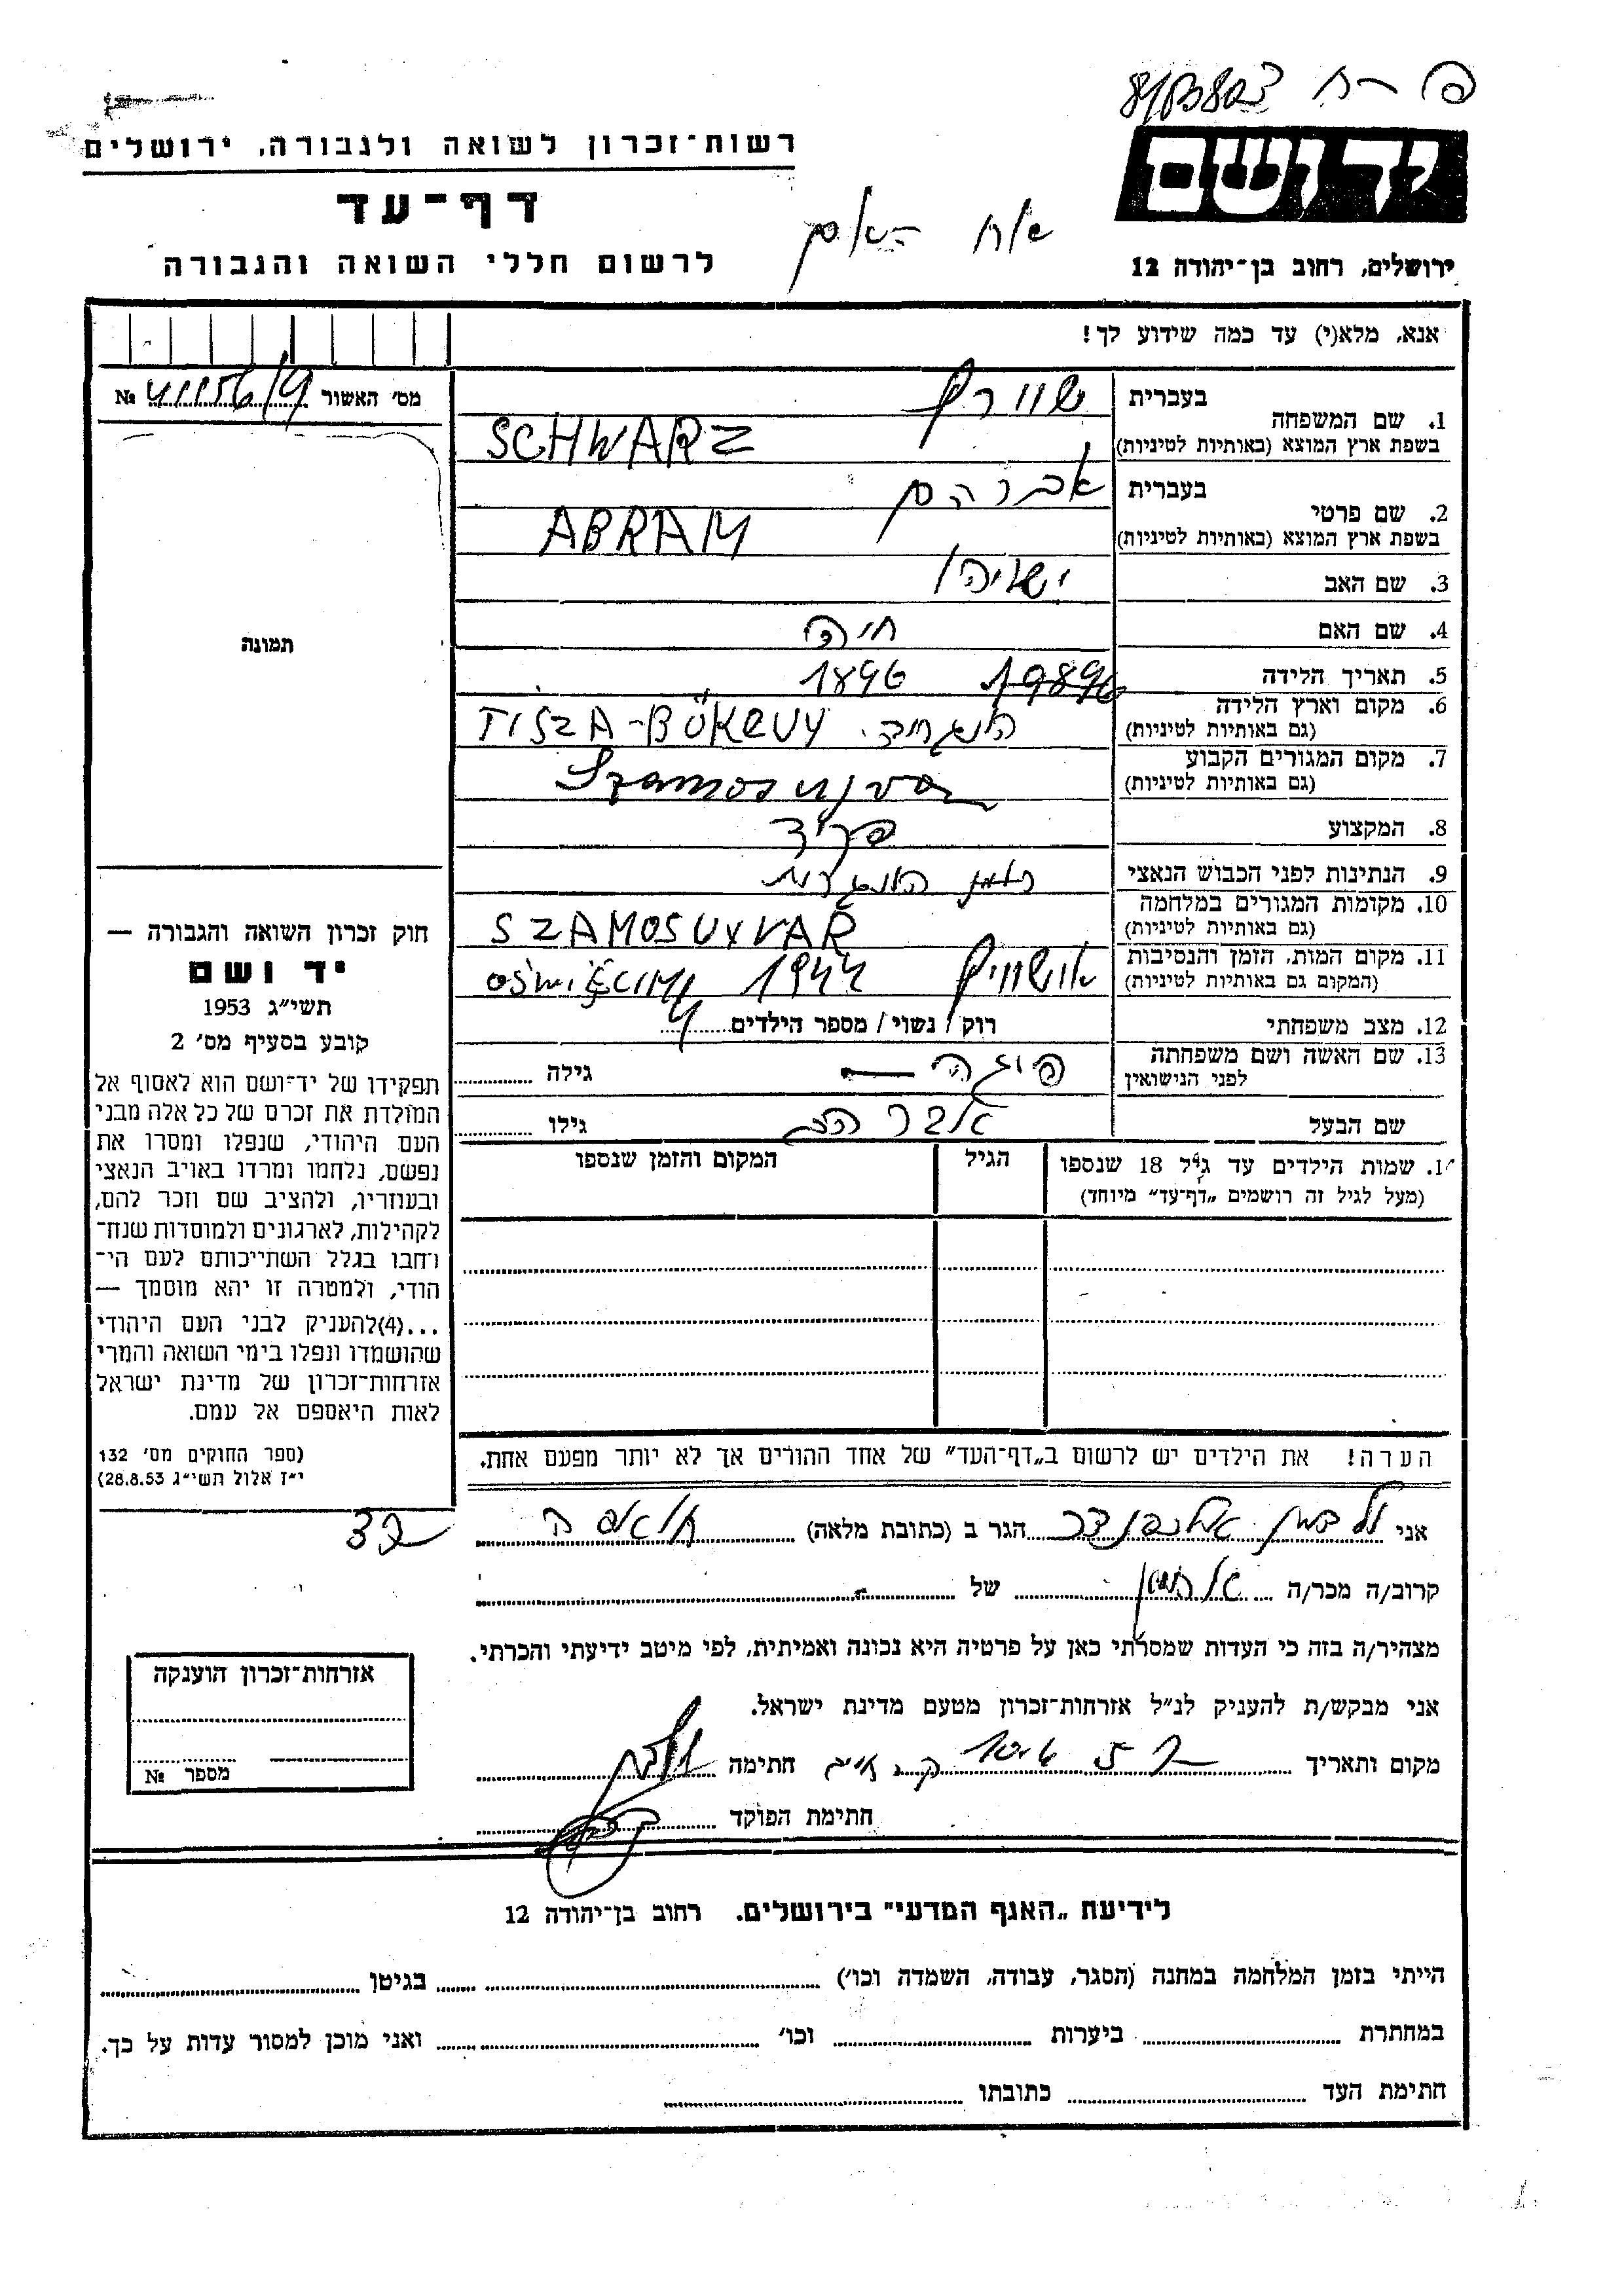 רשות־זכרון לשואה ולגבורה, ירושלים
דף־עד
לרשום חללי השואה והגבורה
יד ושם
ירושלים, רחוב בן־יהודה 12
אח האם
אנא, מלא(י) עד כמה שידוע לך!
מס׳ האשור №
1. שם המשפחה
בעברית שוורץ
בשפת ארץ המוצא (באותיות לטיניות) SCHWARZ
2. שם פרטי
בעברית אברהם
בשפת ארץ המוצא (באותיות לטיניות) ABRAM
3. שם האב ישעיהו
4. שם האם חיה
5. תאריך הלידה 1896
6. מקום וארץ הלידה
(גם באותיות לטיניות) TISZA-BÖKENY
7. מקום המגורים הקבוע
(גם באותיות לטיניות) Szamosujvar
8. המקצוע פקיד
9. הנתינות לפני הכבוש הנאצי
10. מקומות המגורים במלחמה
(גם באותיות לטיניות) SZAMOSUYVAR
11. מקום המות, הזמן והנסיבות
(המקום גם באותיות לטיניות) אושוויץ 1944 OŚWIĘCIM
12. מצב משפחתי רוק / נשוי / מספר הילדים 4
13. שם האשה ושם משפחתה
לפני הנישואין גילה
שם הבעל גילו
14. שמות הילדים עד גיל 18 שנספו
(מעל לגיל זה רושמים „דף־עד״ מיוחד)
הגיל
המקום והזמן שנספו
הערה! את הילדים יש לרשום ב„דף־העד״ של אחד ההורים אך לא יותר מפעם אחת.
תמונה
חוק זכרון השואה והגבורה —
יד ושם
תשי״ג 1953
קובע בסעיף מס׳ 2
תפקידו של יד־ושם הוא לאסוף אל
המולדת את זכרם של כל אלה מבני
העם היהודי, שנפלו ומסרו את
נפשם, נלחמו ומרדו באויב הנאצי
ובעוזריו, ולהציב שם וזכר להם,
לקהילות, לארגונים ולמוסדות שנח־
רבו בגלל השתייכותם לעם הי־
הודי, ולמטרה זו יהא מוסמך —
...(4)להעניק לבני העם היהודי
שהושמדו ונפלו בימי השואה והמרי
אזרחות־זכרון של מדינת ישראל
לאות היאספם אל עמם.
(ספר החוקים מס׳ 132
י״ז אלול תשי״ג 28.8.53)
אני אלכסנדר הגר ב (כתובת מלאה)
קרוב/ה מכר/ה של
מצהיר/ה בזה כי העדות שמסרתי כאן על פרטיה היא נכונה ואמיתית, לפי מיטב ידיעתי והכרתי.
אני מבקש/ת להעניק לנ״ל אזרחות־זכרון מטעם מדינת ישראל.
מקום ותאריך חתימה
חתימת הפוקד
אזרחות־זכרון הוענקה
מספר №
לידיעת „האגף המדעי״ בירושלים. רחוב בן־יהודה 12
הייתי בזמן המלחמה במחנה (הסגר, עבודה, השמדה וכו׳) בגיטו
במחתרת ביערות וכו׳ ואני מוכן למסור עדות על כך.
חתימת העד כתובתו